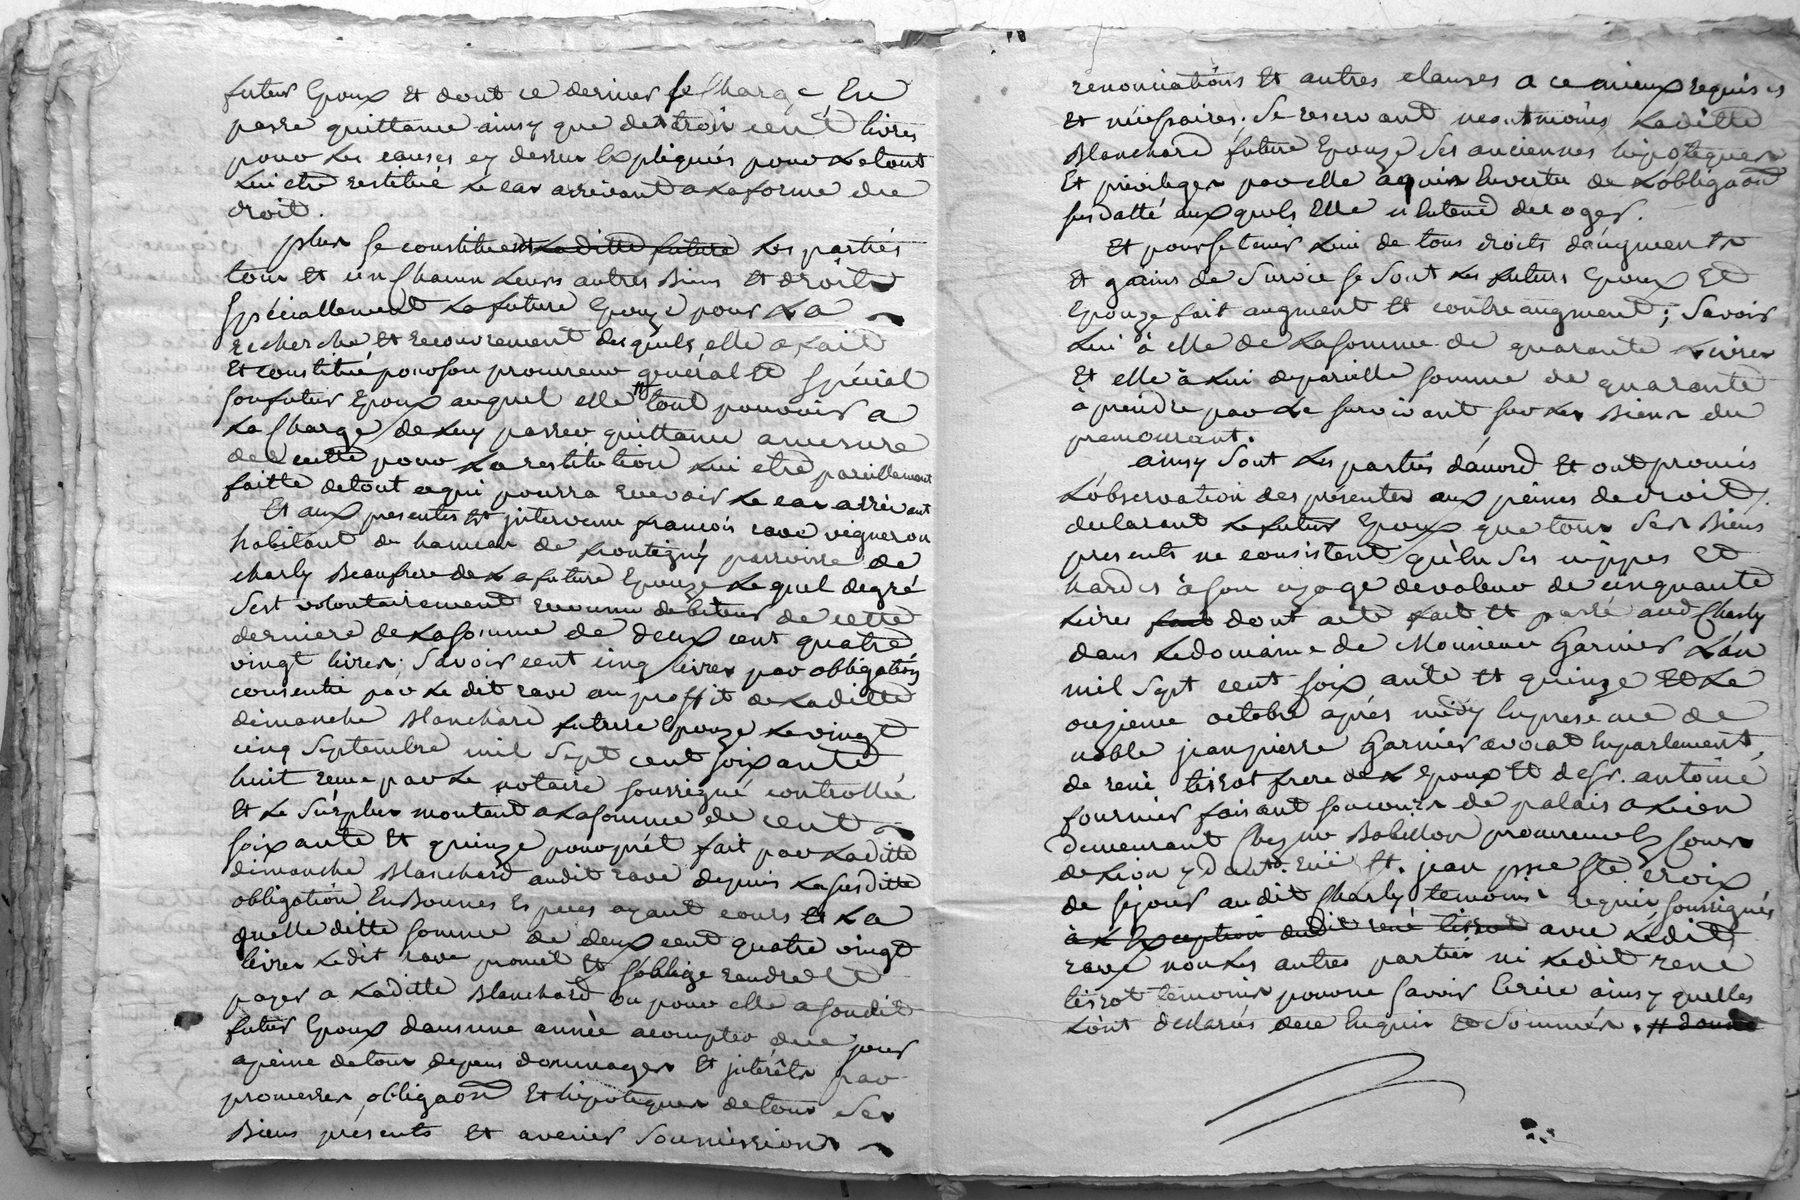 futur Epoux Et dont ce dernier se Charge, En
passe quittance ainsy que des trois cent livres
pour Les causes cy dessus Expliquées pour Le tout
Lui etre restitué Le cas arrivant a La forme du
droit.
plus se constituent La ditte future Les parties
tous et un Chacun Leurs autres Biens Et droits
spéciallement La future Epouze pour La
recherche et recouvrement desquels elle a fait
Et constitué pour son procureur general Et spécial
son futur Epoux auquel elle tout pouvoir a
La Charge de Luy passer quittance a mesure
de recette pour La restitution Lui etre pareillement
faitte de tout ce qui pourra recevoir Le cas arrivant
Et aux presentes Est intervenu françois rave vigneron
habitant du hameau de Montigny parroisse de
charly Beaufrere de La future Epouze Lequel de gré
s'est volontairement reconnu debiteur de cette
derniere de La somme de deux cent quatre
vingt livres; savoir cent cinq livres par obligation
consentie par Le dit rave au proffit de Laditte
dimanche Blanchard future Epouze Le vingt
cinq septembre mil sept cent soixante
huit recue par Le notaire soussigné controllée
Et Le surplus montant a La somme de cent
soixante Et quinze pour prêt fait par Laditte
dimanche Blanchard audit rave depuis La susditte
obligation En Bonnes Especes ayant cours et La
quelle ditte somme de deux cent quatre vingt
livres Ledit rave promet Et s'oblige rendre Et
payer a Laditte Blanchard ou pour elle a sondit
futur Epoux dans une année a compter de ce jour
a peine de tous depens dommages Et interêts par
promesses, obligaon Et hipoteques de tous ses
Biens presents Et avenir soumissions
renonciations Et autres clauses a ce mieux requises
Et nécessaires. Se reservant neantmoins Laditte
Blanchard future Epouze ses anciennes hipoteques
Et privileges par elle aquis En vertu de L'obligaon
susdatté auxquels Elle n'Entend deroger.
Et pour se tenir Lieu de tous droits d'augments
Et gains de survie se sont Les futurs Epoux Et
Epouze fait augment Et contre augment; savoir
Lui à elle de La somme de quarante Livres
Et elle à Lui de pareille somme de quarante
à prendre par Le survivant sur Les Biens du
premourant.
ainsy sont Les parties d'acord Et ont promis
L'observation des presentes aux peines de droit,
declarant Le futur Epoux que tous ses Biens
presents ne consistent qu'En ses nippes Et
hardes à son uzage de valeur de cinquante
Livres fait dont acte fait Et passé aud Charly
dans Le domaine de Monsieur Garnier L'an
mil sept cent soixante Et quinze Et Le
onzieme octobre aprés midy En presence de
noble jean pierre Garnier avocat En parlement,
de rené tissot frere de L'Epoux Et de sr. antoine
fournier faisant son cours de palais a Lion
demeurant Chez mr Babillon procureur Es Cours
de Lion y d. rüe St. jean psse Ste Croix
de sejour audit Charly temoins requis soussignés
à L'Exception dudit rené tissot avec Ledit
rave non Les autres parties ni Ledit rene
tissot temoins pour ne savoir Ecrire ainsy quelles
L'ont declarés de ce Enquis Et Sommés. # donné